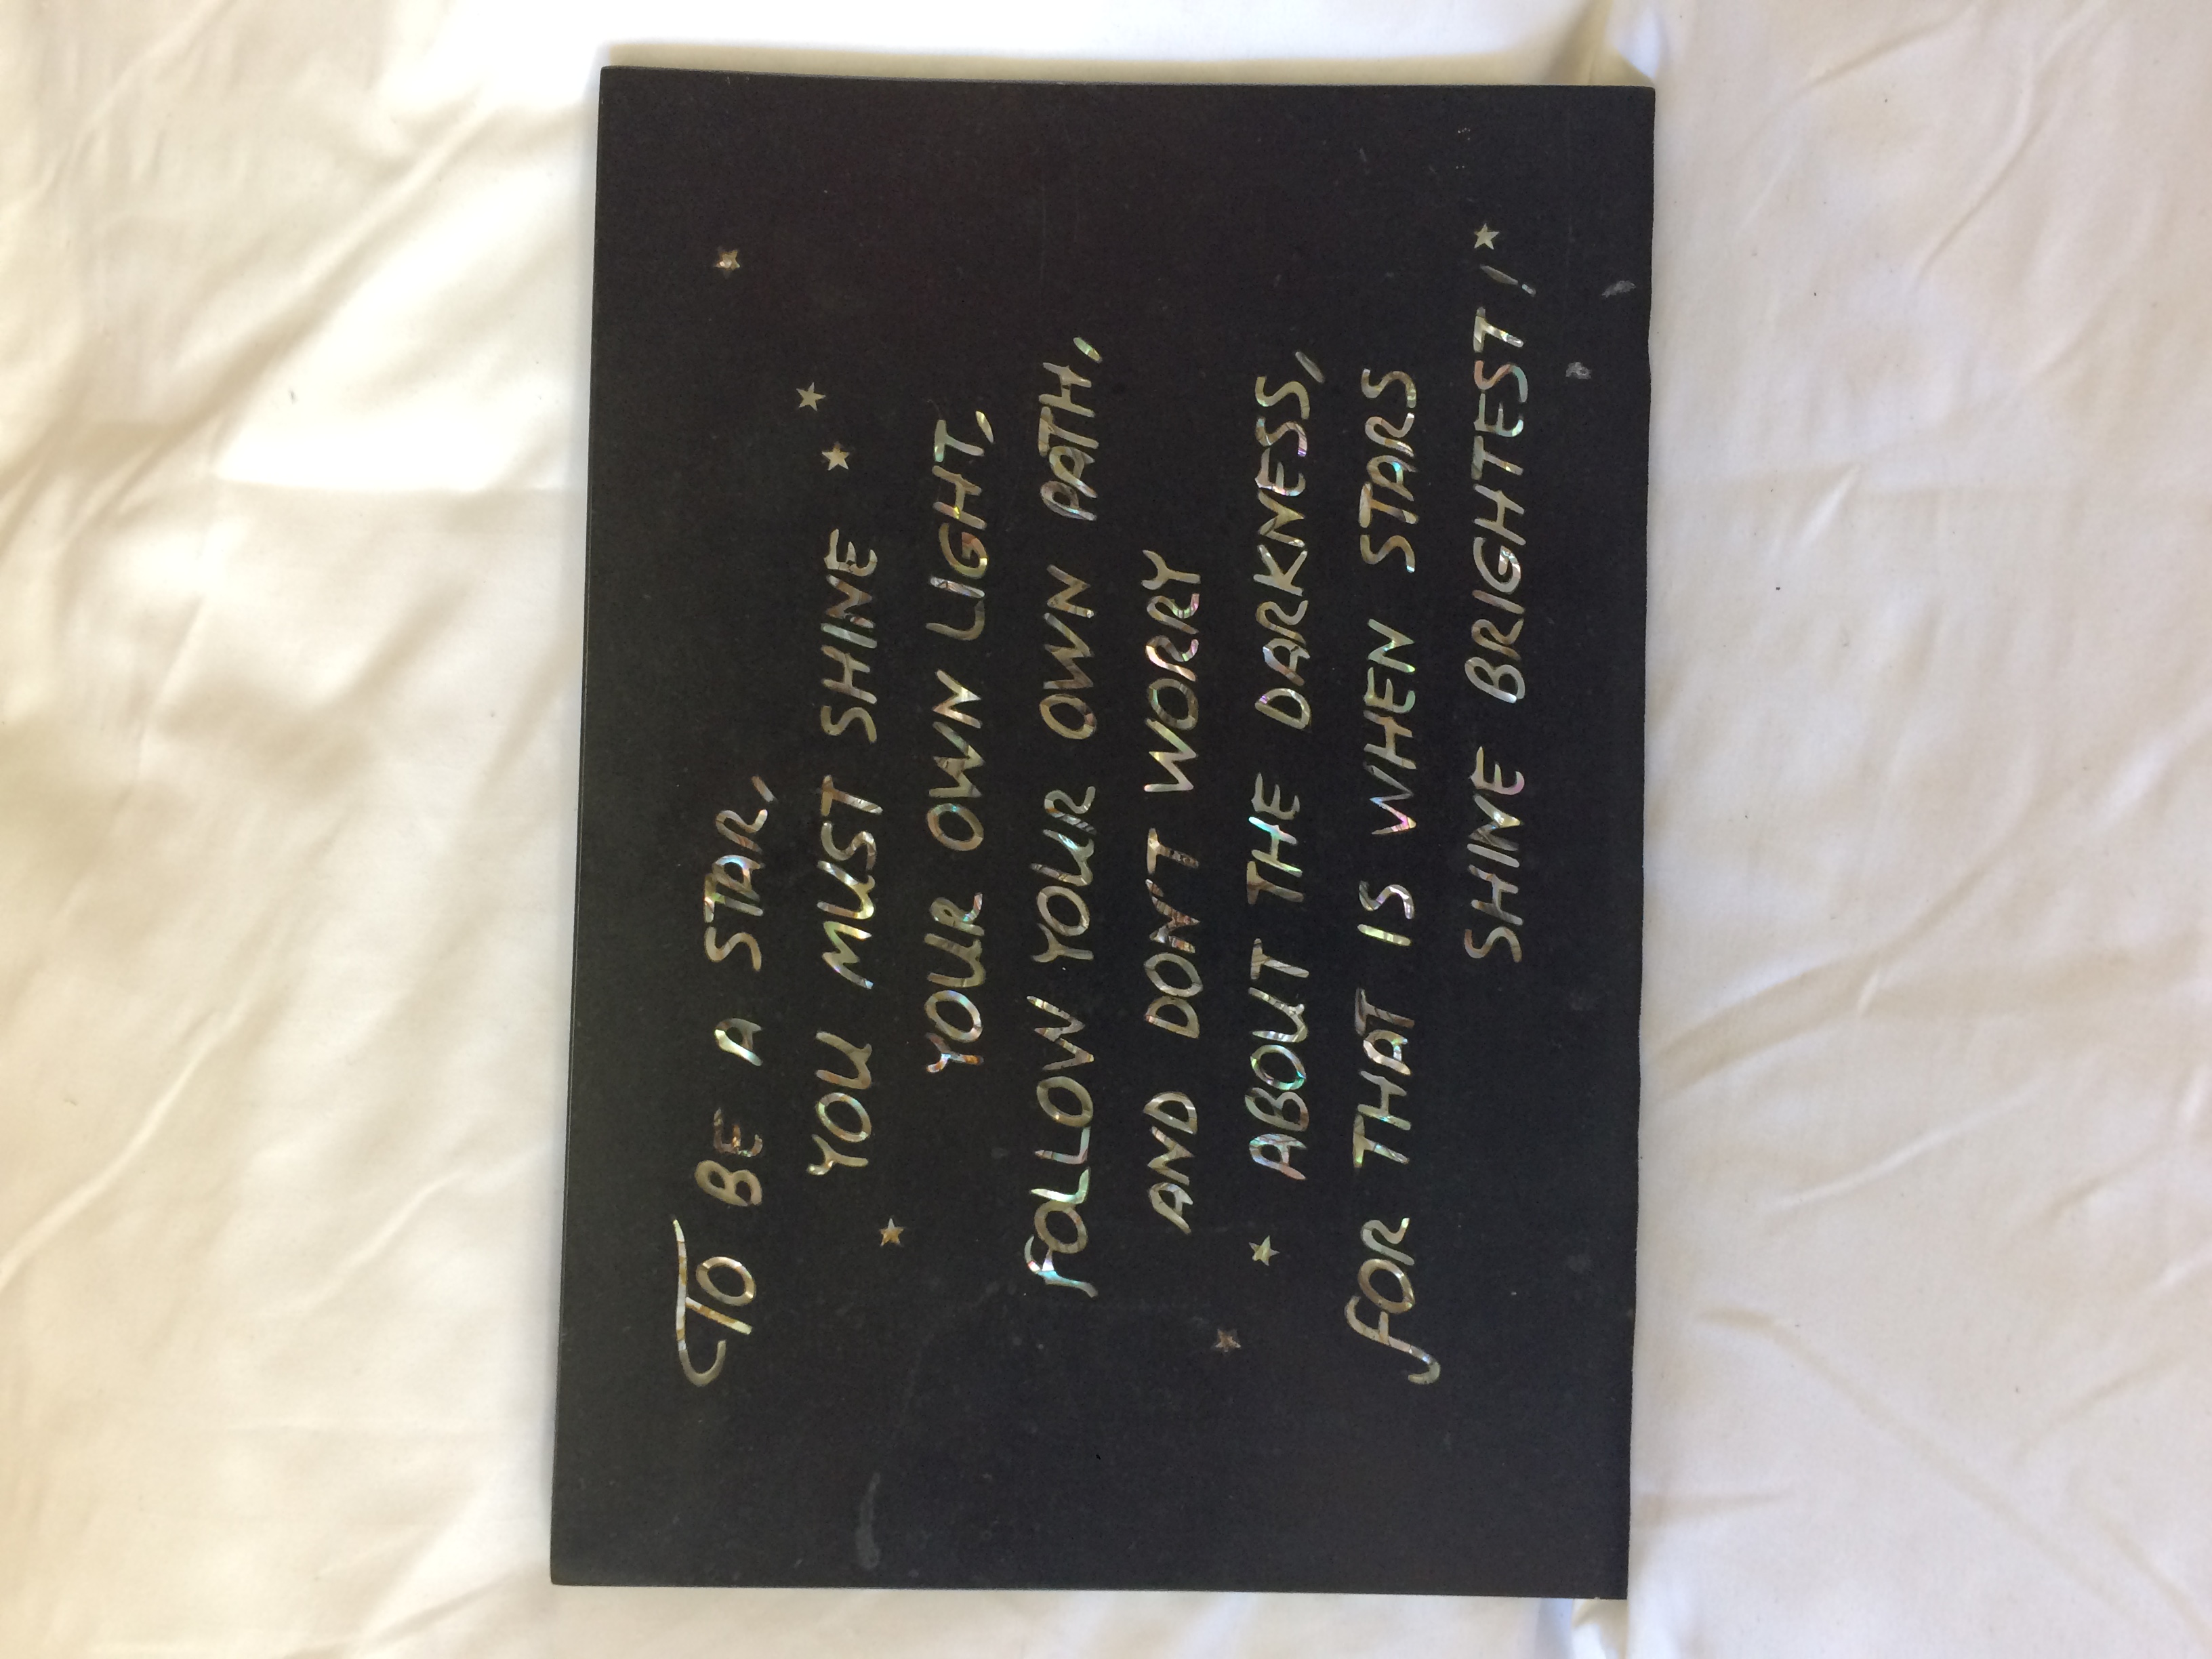 TO BE A STAR,
YOU MUST SHINE
YOUR OWN LIGHT,
FOLLOW YOUR OWN PATH,
AND DON'T WORRY
ABOUT THE DARKNESS,
FOR THAT IS WHEN STARS
SHINE BRIGHTEST!